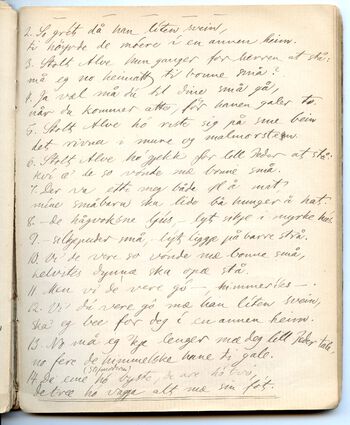 2. So gret då han liten svein,
ti höyrde de moere i en annen heim.
3. Stolt Alve hun ganger for herren at stå:
må eg no heimatt, til bonne små?
4. Ja vel må du til dine små gå,
når du kommer atte, för hanen galer to.
5. Stolt Alve hó reiste sig på sine bein
det rivna i mure og malmorstein.
6. Stolt Alve hó for litl Peder at stå
kvi æ de so vonde mæ bonne små.
7. Der va ette meg både öl å mat
mine småbarn ska lida bå hunger å hat.
8. – de högvoksne ljus – lyt i myrke hus.
9. – små, lyt liggja på barre strå.
10. Vi de vere so vonde mæ bonne små,
helvetes dynnæ ska opæ stå.
11. Men vi de vere gó – himmeries –.
12. Vi du vere gó mæ han liten svein,
ska eg bee for deg i en annen heim.
13. No må eg kje lenger mæ deg litl Peder tala,
no fere de himmelske hane å gale.
(Stifmoderen)
14. De eine hó byste, de are hó två,
de træe hó vogga alt mæ sin fot.